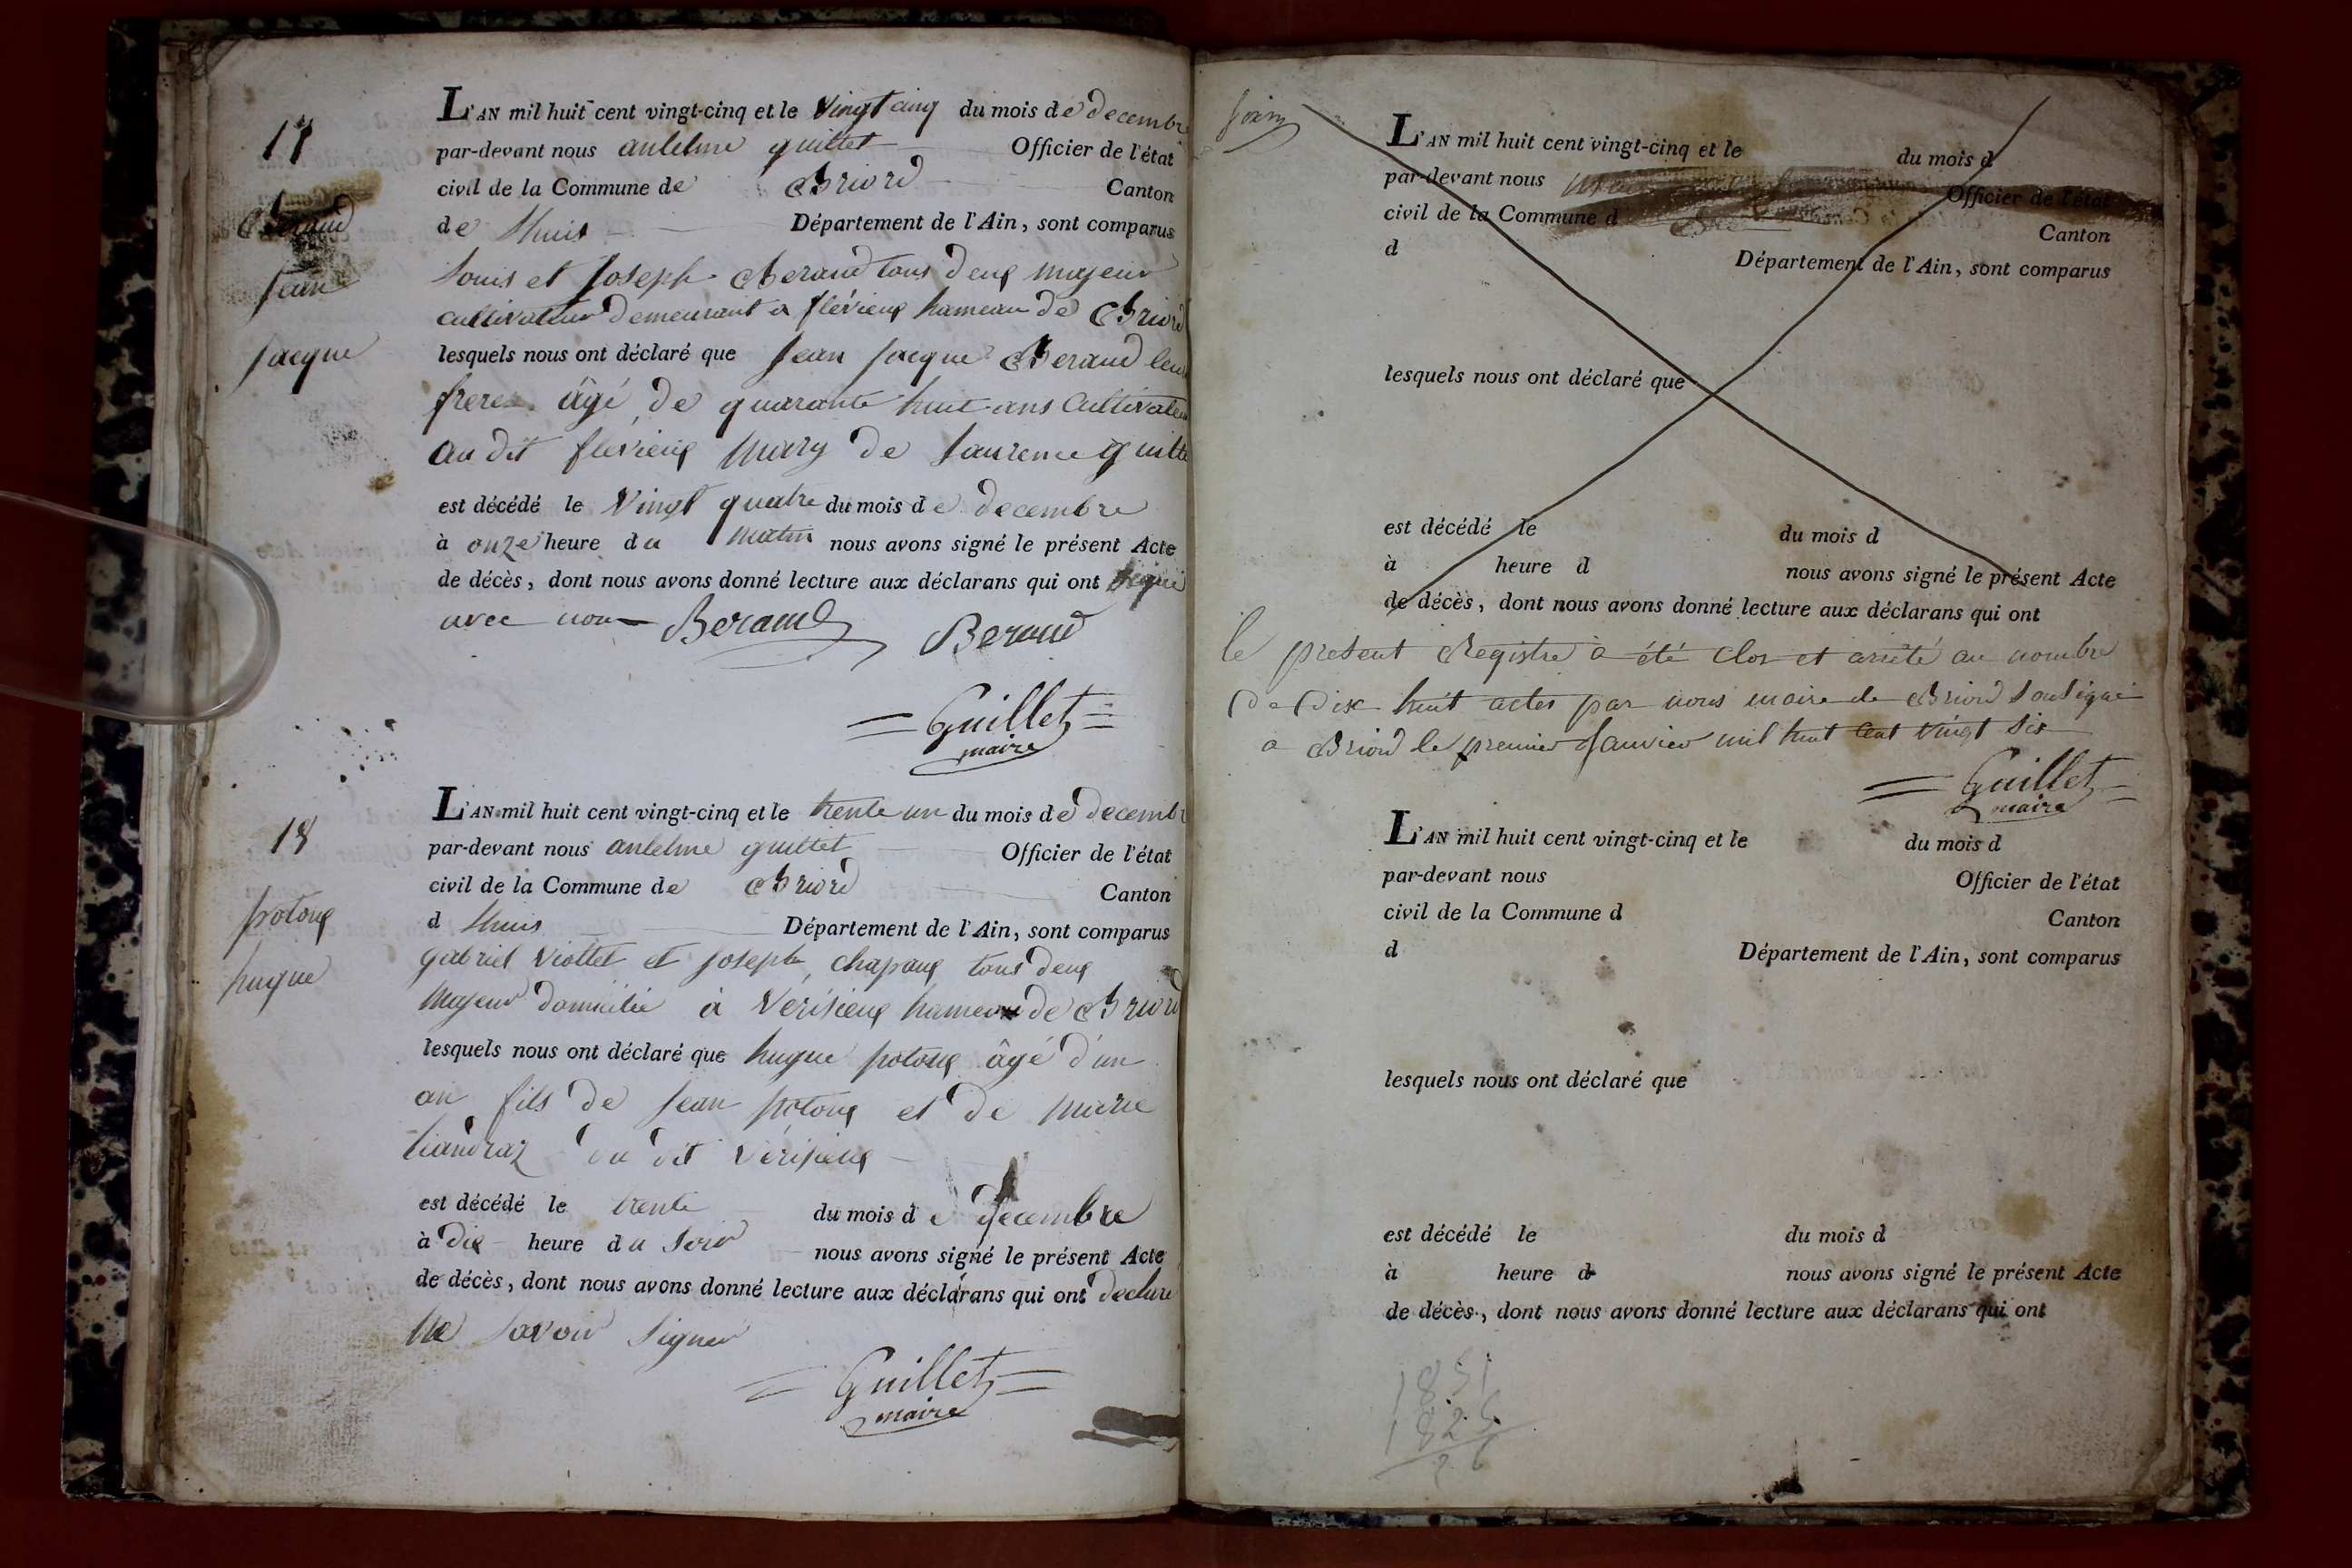 17
Beraud
Jean
Jacque
L'AN mil huit cent vingt-cinq et le vingt cinq du mois de decembre
par-devant nous antelme guillet Officier de l'état
civil de la Commune de Briord Canton
de Lhuis Département de l'Ain, sont comparus
Louis et Joseph Beraud tous deux majeur
cultivateur demeurant a flévieux hameau de Briord
lesquels nous ont déclaré que Jean Jacque Beraud leur
frere âgé de quarante huit ans Cultivateur
au dit flévieux mary de Laurence guille
est décédé le vingt quatre du mois de decembre
à onze heure du matin nous avons signé le présent Acte
de décès, dont nous avons donné lecture aux déclarans qui ont signé
avec nous Beraud Beraud
Guillet
maire
18
potoux
hugue
L'AN mil huit cent vingt-cinq et le trente un du mois de decembr
par-devant nous antelme guillet Officier de l'état
civil de la Commune de Briord Canton
d Lhuis Département de l'Ain, sont comparus
gabriel Viollet et Joseph chapaux tous deux
majeur domicilié à Vérisieux hameau de Briord
lesquels nous ont déclaré que hugue potoux âgé d'un
an fils de Jean potoux et de marie
du dit Vérisieux
est décédé le trente du mois de decembre
à dix heure du soir nous avons signé le présent Acte
de décès, dont nous avons donné lecture aux déclarans qui ont declaré
ne savoir signer
Guillet
maire
L'AN mil huit cent vingt-cinq et le du mois d
par-devant nous Officier de l'état
civil de la Commune d Canton
d Département de l'Ain, sont comparus
lesquels nous ont déclaré que
est décédé le du mois d
à heure d nous avons signé le présent Acte
de décès, dont nous avons donné lecture aux déclarans qui ont
le present Registre a été clos et arrêté au nombre
De Dix huit actes par nous maire de Briord soussigné
a Briord le premier Janvier mil huit cent vingt six
Guillet
maire
L'AN mil huit cent vingt-cinq et le du mois d
par-devant nous Officier de l'état
civil de la Commune d Canton
d Département de l'Ain, sont comparus
lesquels nous ont déclaré que
est décédé le du mois d
à heure d nous avons signé le présent Acte
de décès, dont nous avons donné lecture aux déclarans qui ont
1851
1825
26